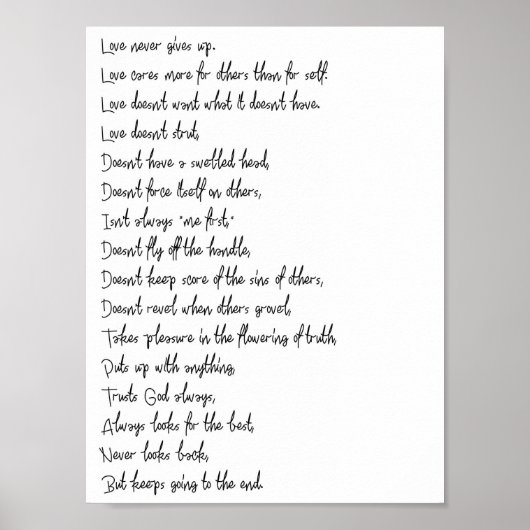 Love never gives up.
Love cares more for others than for self.
Love doesn't want what it doesn't have.
Love doesn't strut,
Doesn't have a swelled head,
Doesn't force itself on others,
Isn't always "me first,"
Doesn't fly off the handle,
Doesn't keep score of the sins of others,
Doesn't revel when others grovel,
Takes pleasure in the flowering of truth,
Puts up with anything,
Trusts God always,
Always looks for the best,
Never looks back,
But keeps going to the end.